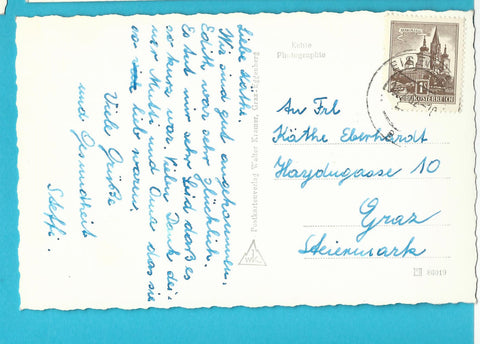 Liebe Käthe.
Wir sind gut angekommen,
Edith war sehr glücklich.
Es tut mir sehr Leid daß es
so kurz war. Vielen Dank dei-
ner Mutti und Oma das sie
so lieb waren.
Viele Grüße
und Gesundheit
Steffi.
Postkartenverlag Walter Kramer, Graz
WK
Echte
Photographie
REPUBLIK ÖSTERREICH
An Frl
Käthe Eberhardt
Haydngasse 10
Graz
Steiermark
86019